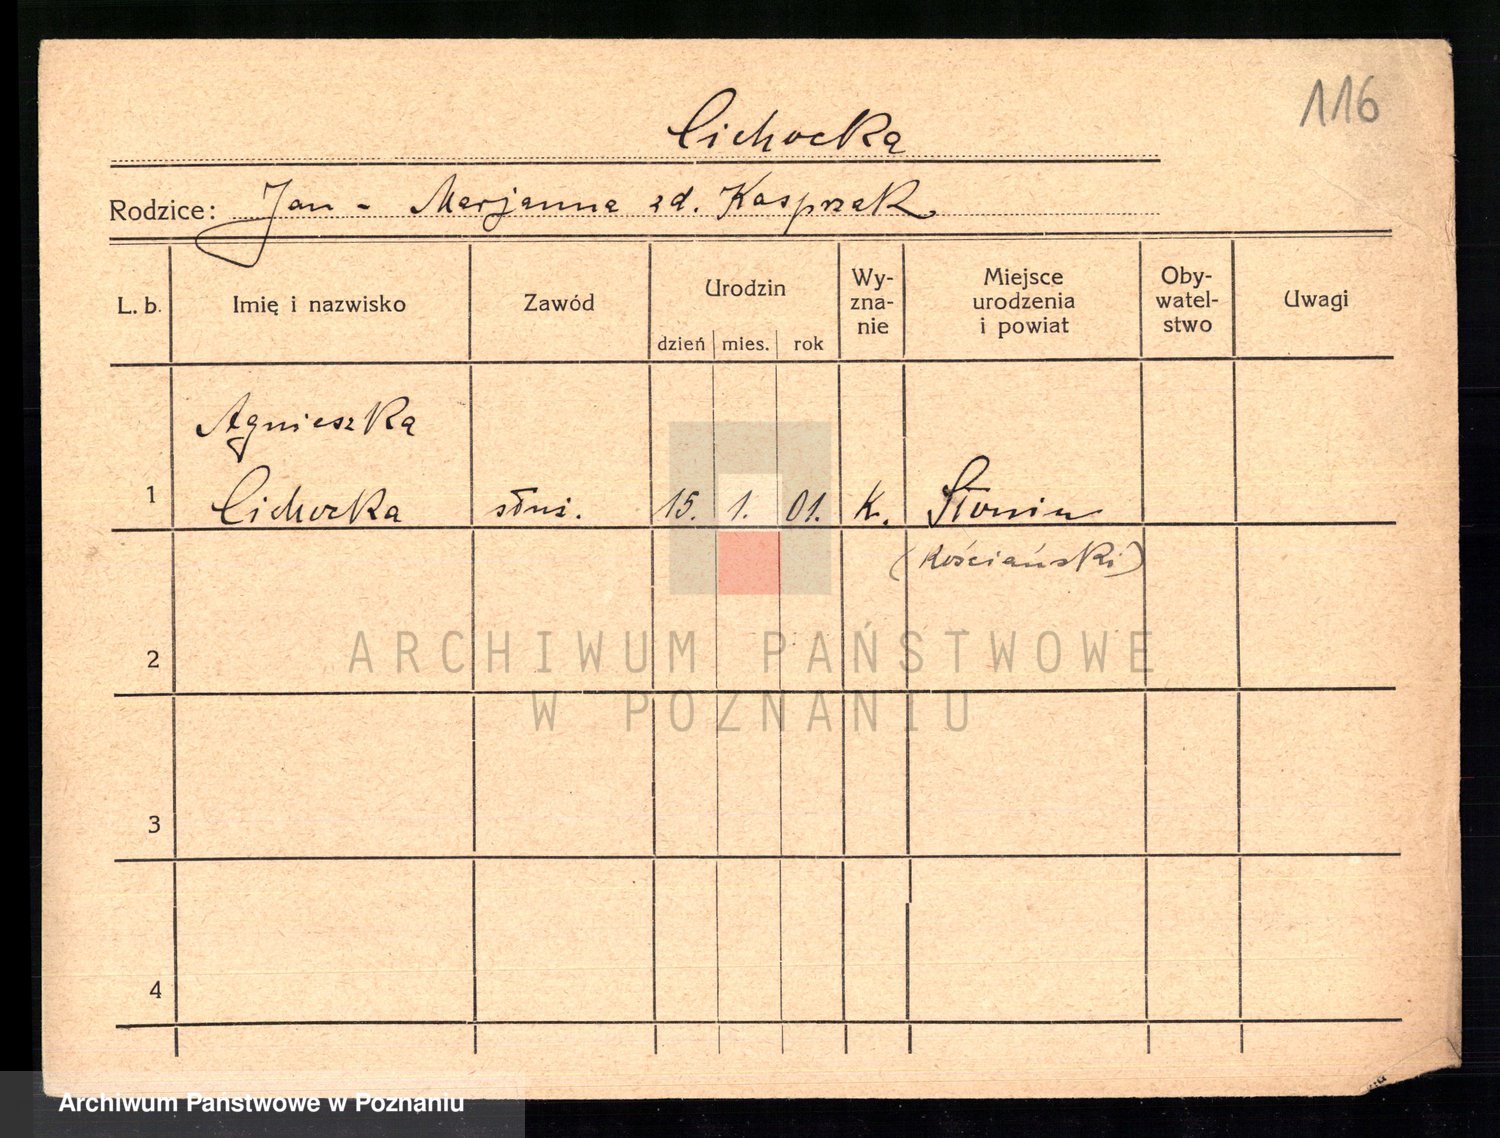 116
Cichocka
Rodzice: Jan - Marjanna zd. Kasprzak
L. b.
Imię i nazwisko
Zawód
Urodzin
dzień mies. rok
Wy-
zna-
nie
Miejsce
urodzenia
i powiat
Oby-
watel-
stwo
Uwagi
Agnieszka
1 Cichocka służ. 15. 1. 01. K. Słonin
(Kościański)
2
3
4
ARCHIWUM PAŃSTWOWE
W POZNANIU
Archiwum Państwowe w Poznaniu